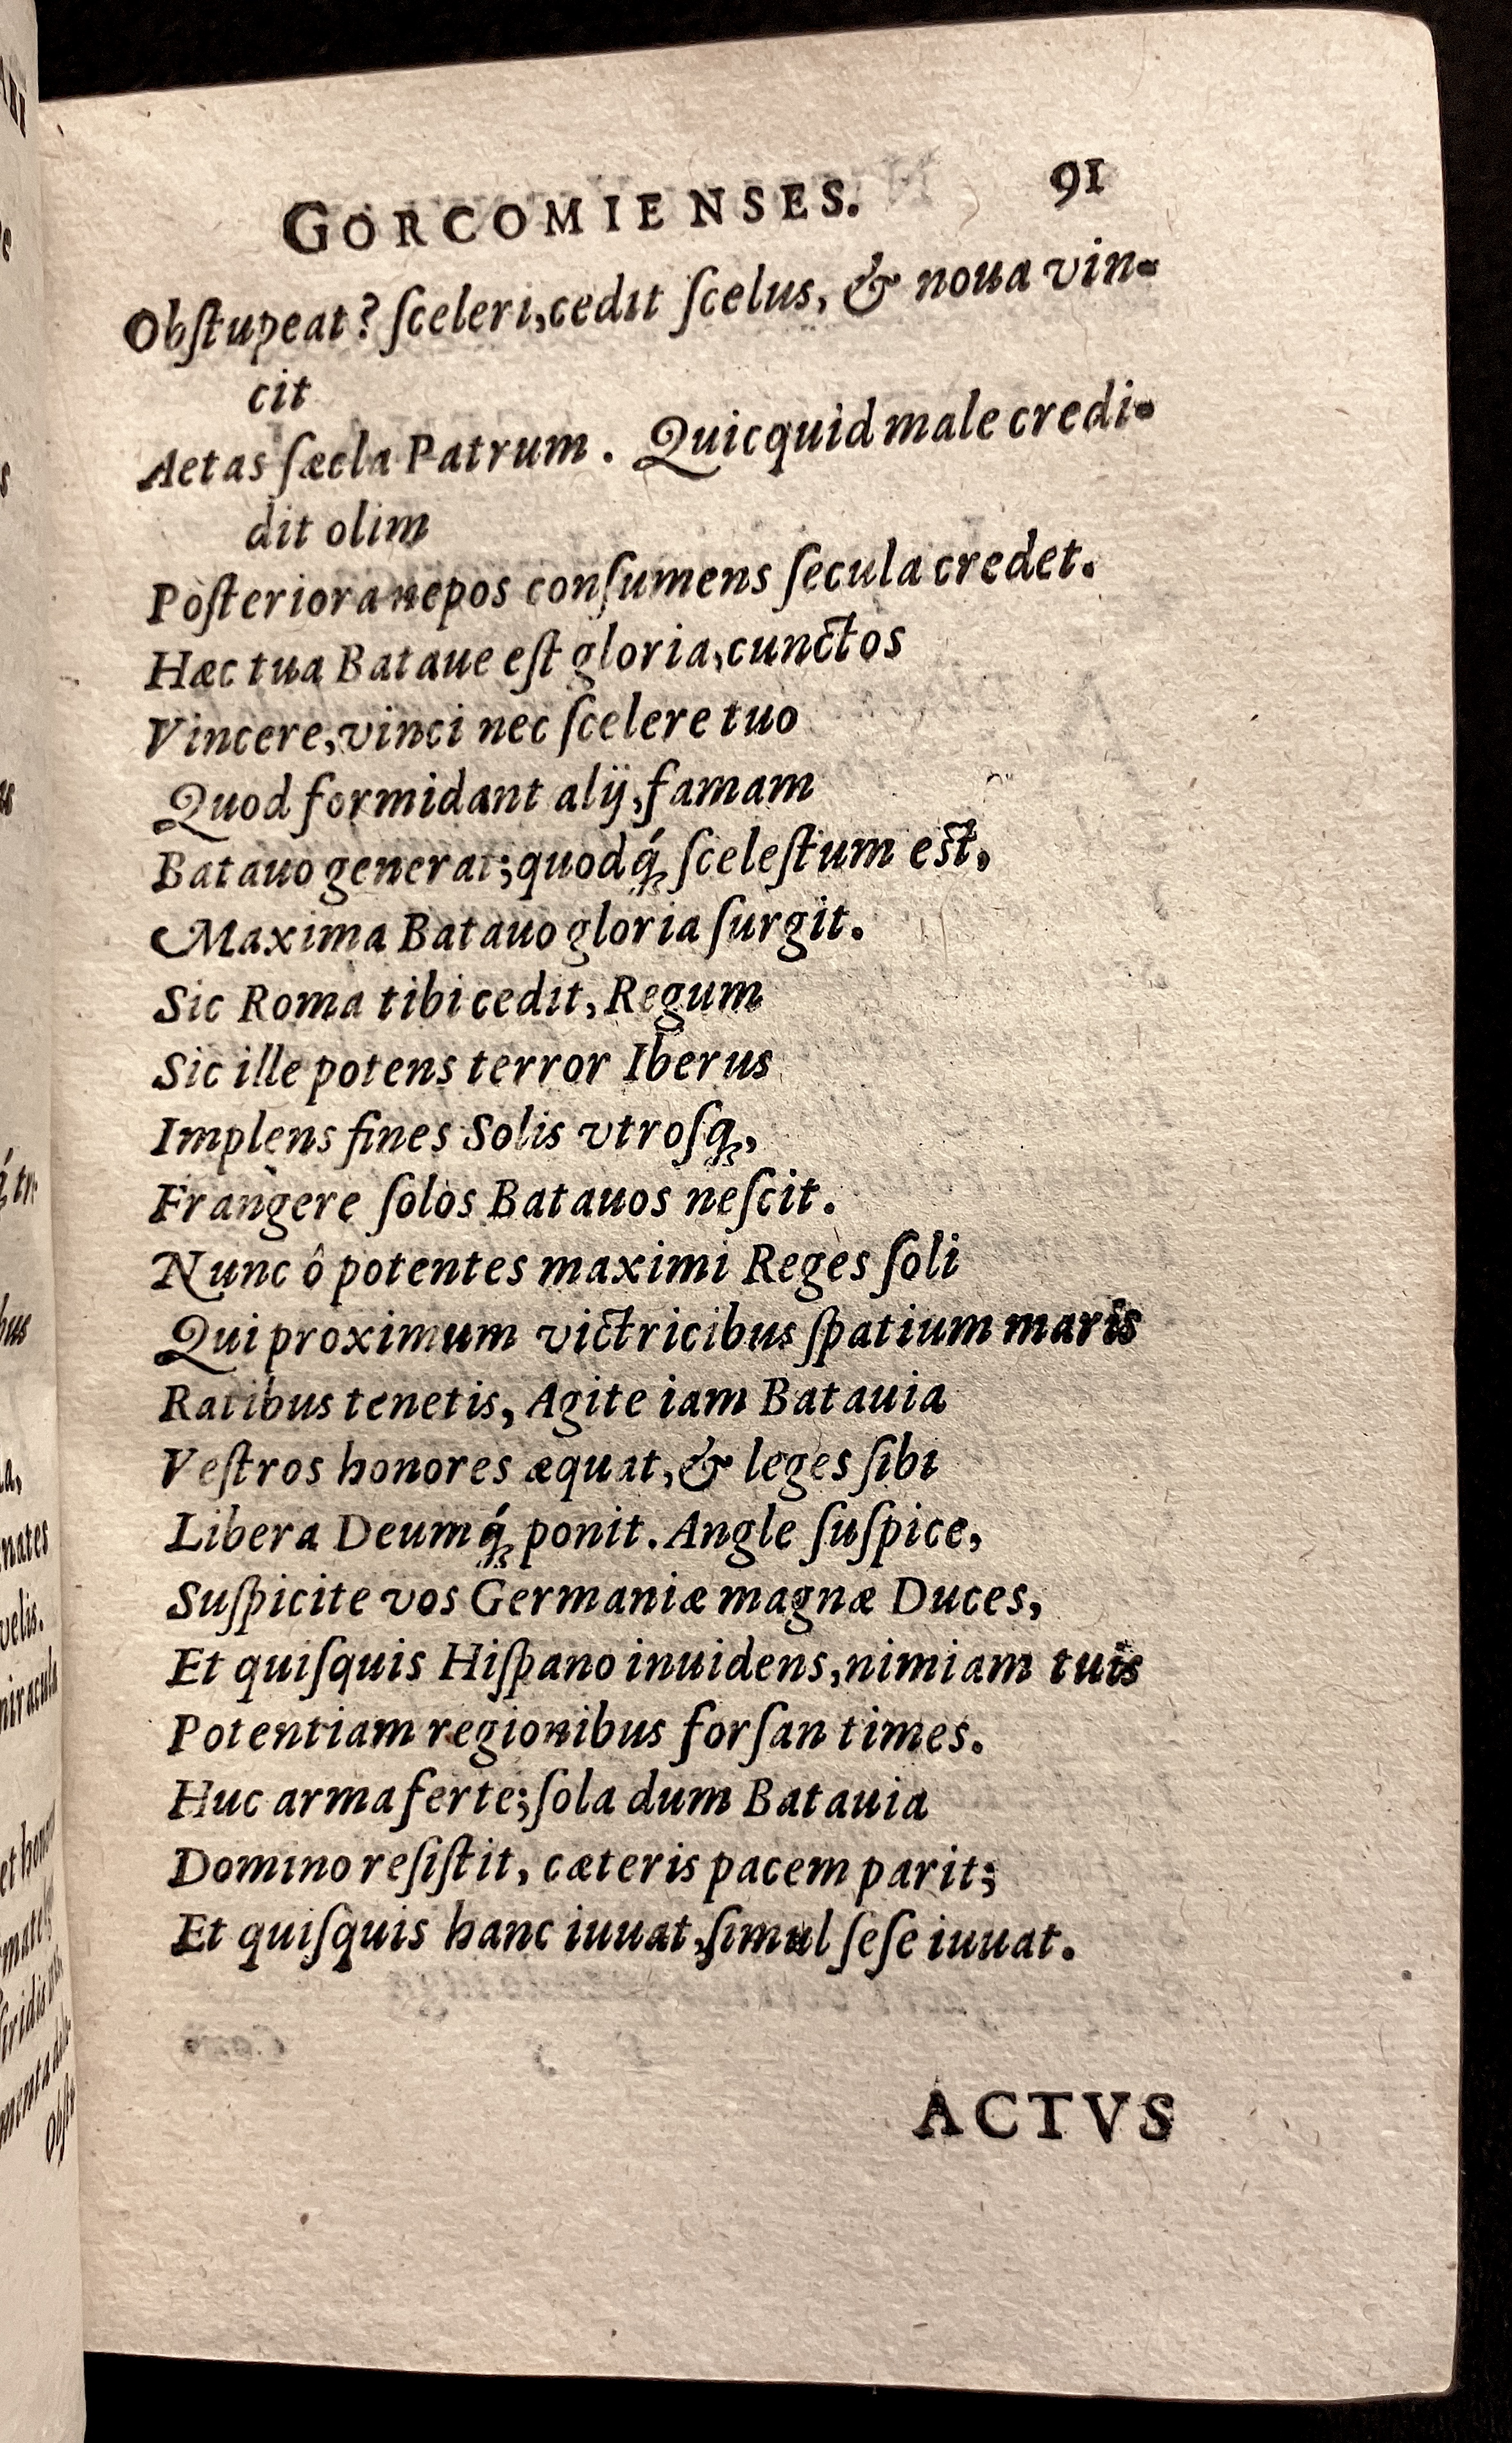 GORCOMIENSES. 91
Obſtupeat? ſceleri, cedit ſcelus, & noua vin-
cit
Aetas ſæcla Patrum. Quicquid male credi-
dit olim
Poſteriora nepos conſumens ſecula credet.
Hæc tua Bataue eſt gloria, cunctos
Vincere, vinci nec ſcelere tuo
Quod formidant alij, famam
Batauo generat; quodq́; ſceleſtum eſt,
Maxima Batauo gloria ſurgit.
Sic Roma tibi cedit, Regum
Sic ille potens terror Iberus
Implens fines Solis vtroſq;,
Frangere ſolos Batauos neſcit.
Nunc ô potentes maximi Reges ſoli
Qui proximum victricibus ſpatium maris
Ratibus tenetis, Agite iam Batauia
Veſtros honores æquat, & leges ſibi
Libera Deumq́; ponit. Angle ſuſpice,
Suſpicite vos Germaniæ magnæ Duces,
Et quiſquis Hiſpano inuidens, nimiam tuis
Potentiam regionibus forſan times.
Huc arma ferte; ſola dum Batauia
Domino reſiſtit, cæteris pacem parit;
Et quiſquis hanc iuuat, ſimul ſeſe iuuat.
ACTVS